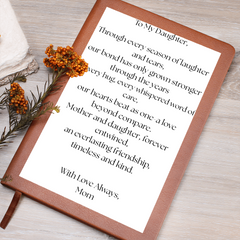 To My Daughter,
Through every season of laughter
and tears,
our bond has only grown stronger
through the years
every hug, every whispered word of
care,
our hearts beat as one a love
beyond compare.
Mother and daughter, forever
entwined,
an everlasting friendship,
timeless and kind.
With Love Always,
Mom